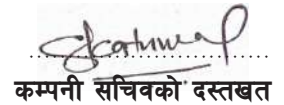 कम्पनी सचिवको दस्तखत